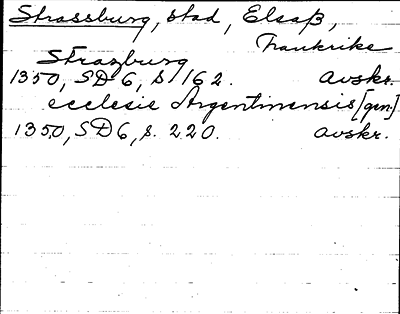 Strassburg, stad, Elsaß,
Frankrike
Strazburg
1350, SD 6, s. 162. avskr.
ecclesie Argentinensis [gen.]
1350, SD 6, s. 220. avskr.